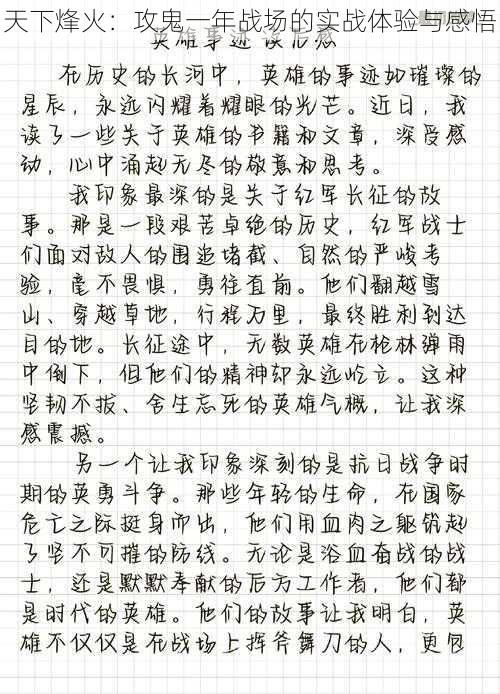 天下烽火：攻鬼一年战场的实战体验与感悟
英雄事迹读后感
在历史的长河中，英雄的事迹如璀璨的
星辰，永远闪耀着耀眼的光芒。近日，我
读了一些关于英雄的书籍和文章，深受感
动，心中涌起无尽的敬意和思考。
我印象最深的是关于红军长征的故
事。那是一段艰苦卓绝的历史，红军战士
们面对敌人的围追堵截、自然的严峻考
验，毫不畏惧，勇往直前。他们翻越雪
山、穿越草地，行程万里，最终胜利到达
目的地。长征途中，无数英雄在枪林弹雨
中倒下，但他们的精神却永远屹立。这种
坚韧不拔、舍生忘死的英雄气概，让我深
感震撼。
另一个让我印象深刻的是抗日战争时
期的英勇斗争。那些年轻的生命，在国家
危亡之际挺身而出，他们用血肉之躯筑起
了坚不可摧的防线。无论是浴血奋战的战
士，还是默默奉献的后方工作者，他们都
是时代的英雄。他们的故事让我明白，英
雄不仅仅是在战场上挥斧舞刀的人，更包